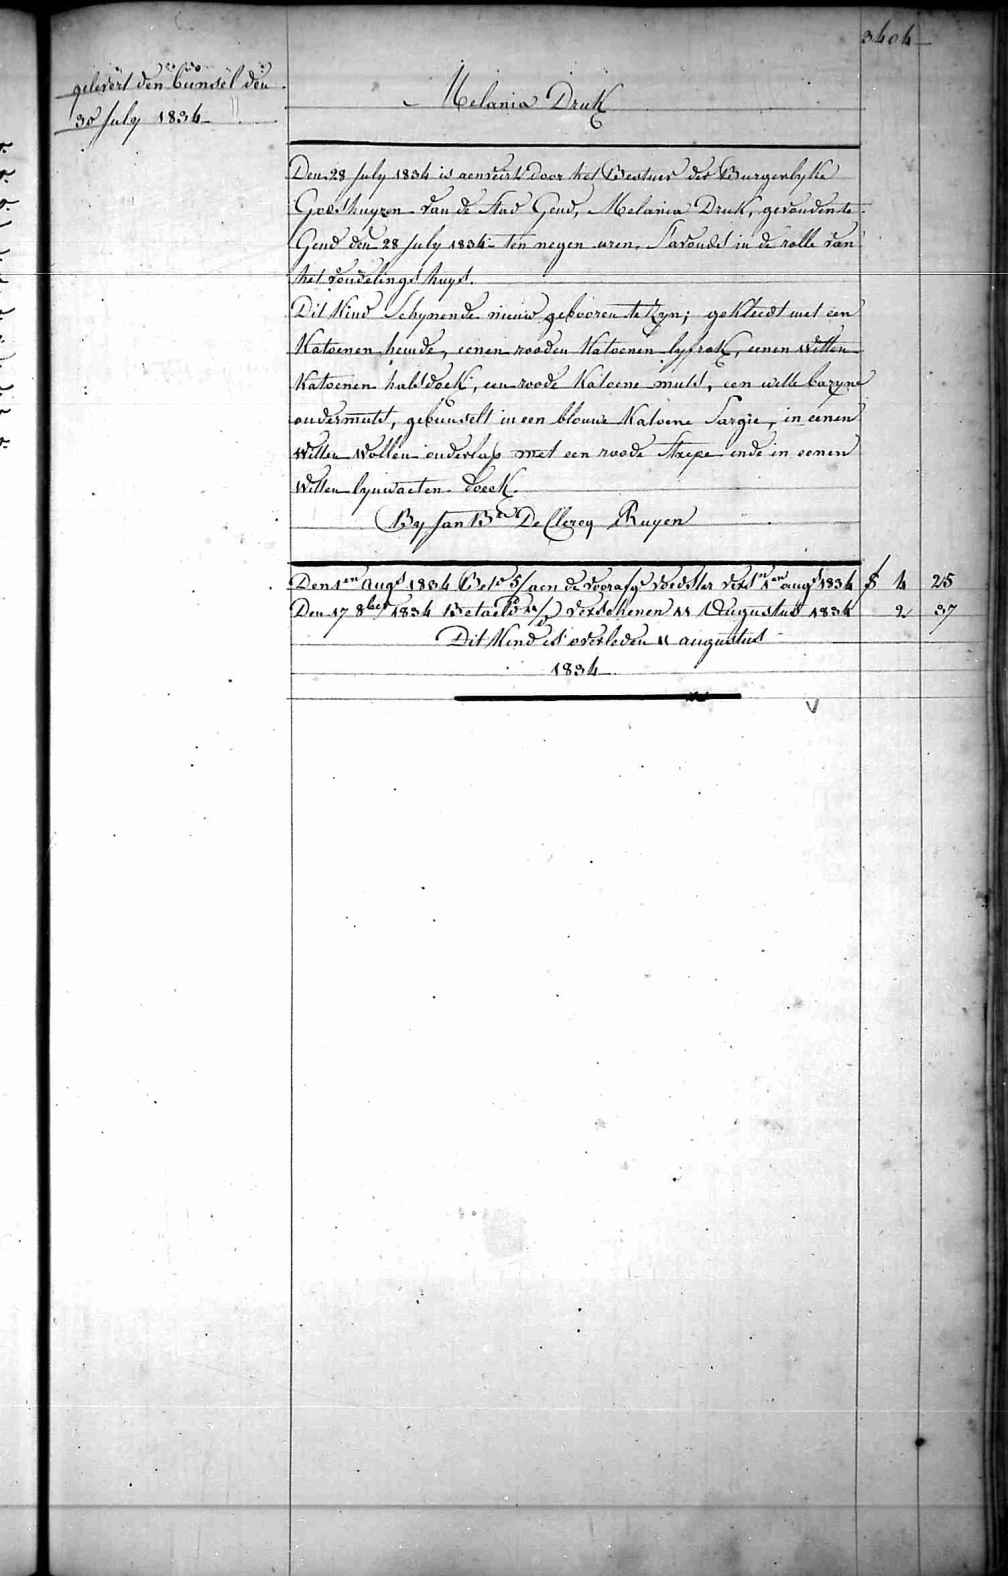 3404
gelevert den bunsel den
30 July 1834
Melania Druk
Den 28 July 1834 is aenveirt door het Bestuer der Burgerlyke
Godshuyzen van de Stad Gend, Melania Druk, gevonden te
Gend den 28 July 1834 ten negen uren S'avonds in de rolle van
het vondelings huys.
Dit Kind Schynende nieuw gebooren te Zyn; gekleedt met een
Katoenen hemde, eenen rooden Katoenen lyfrok, eenen witten
Katoenen halsdoek, een roode Katoene muts, een witte bazyne
ondermuts, gebunselt in een blauwe Katoene Sargie, in eenen
Witten Wollen onderlap met een roode Strepe ende in eenen
Witten lynwaeten doeck.
By Jan Bte De Clercq Ruyen
Den 1en augt 1834 Bete 5/ aen de voorafge voedster vers 1en augt 1834 f 4 25
Den 17 8ber 1834 Betaelt verschenen 11 Augustus 1834 2 37
Dit Kind is overleden 11 augustus
1834